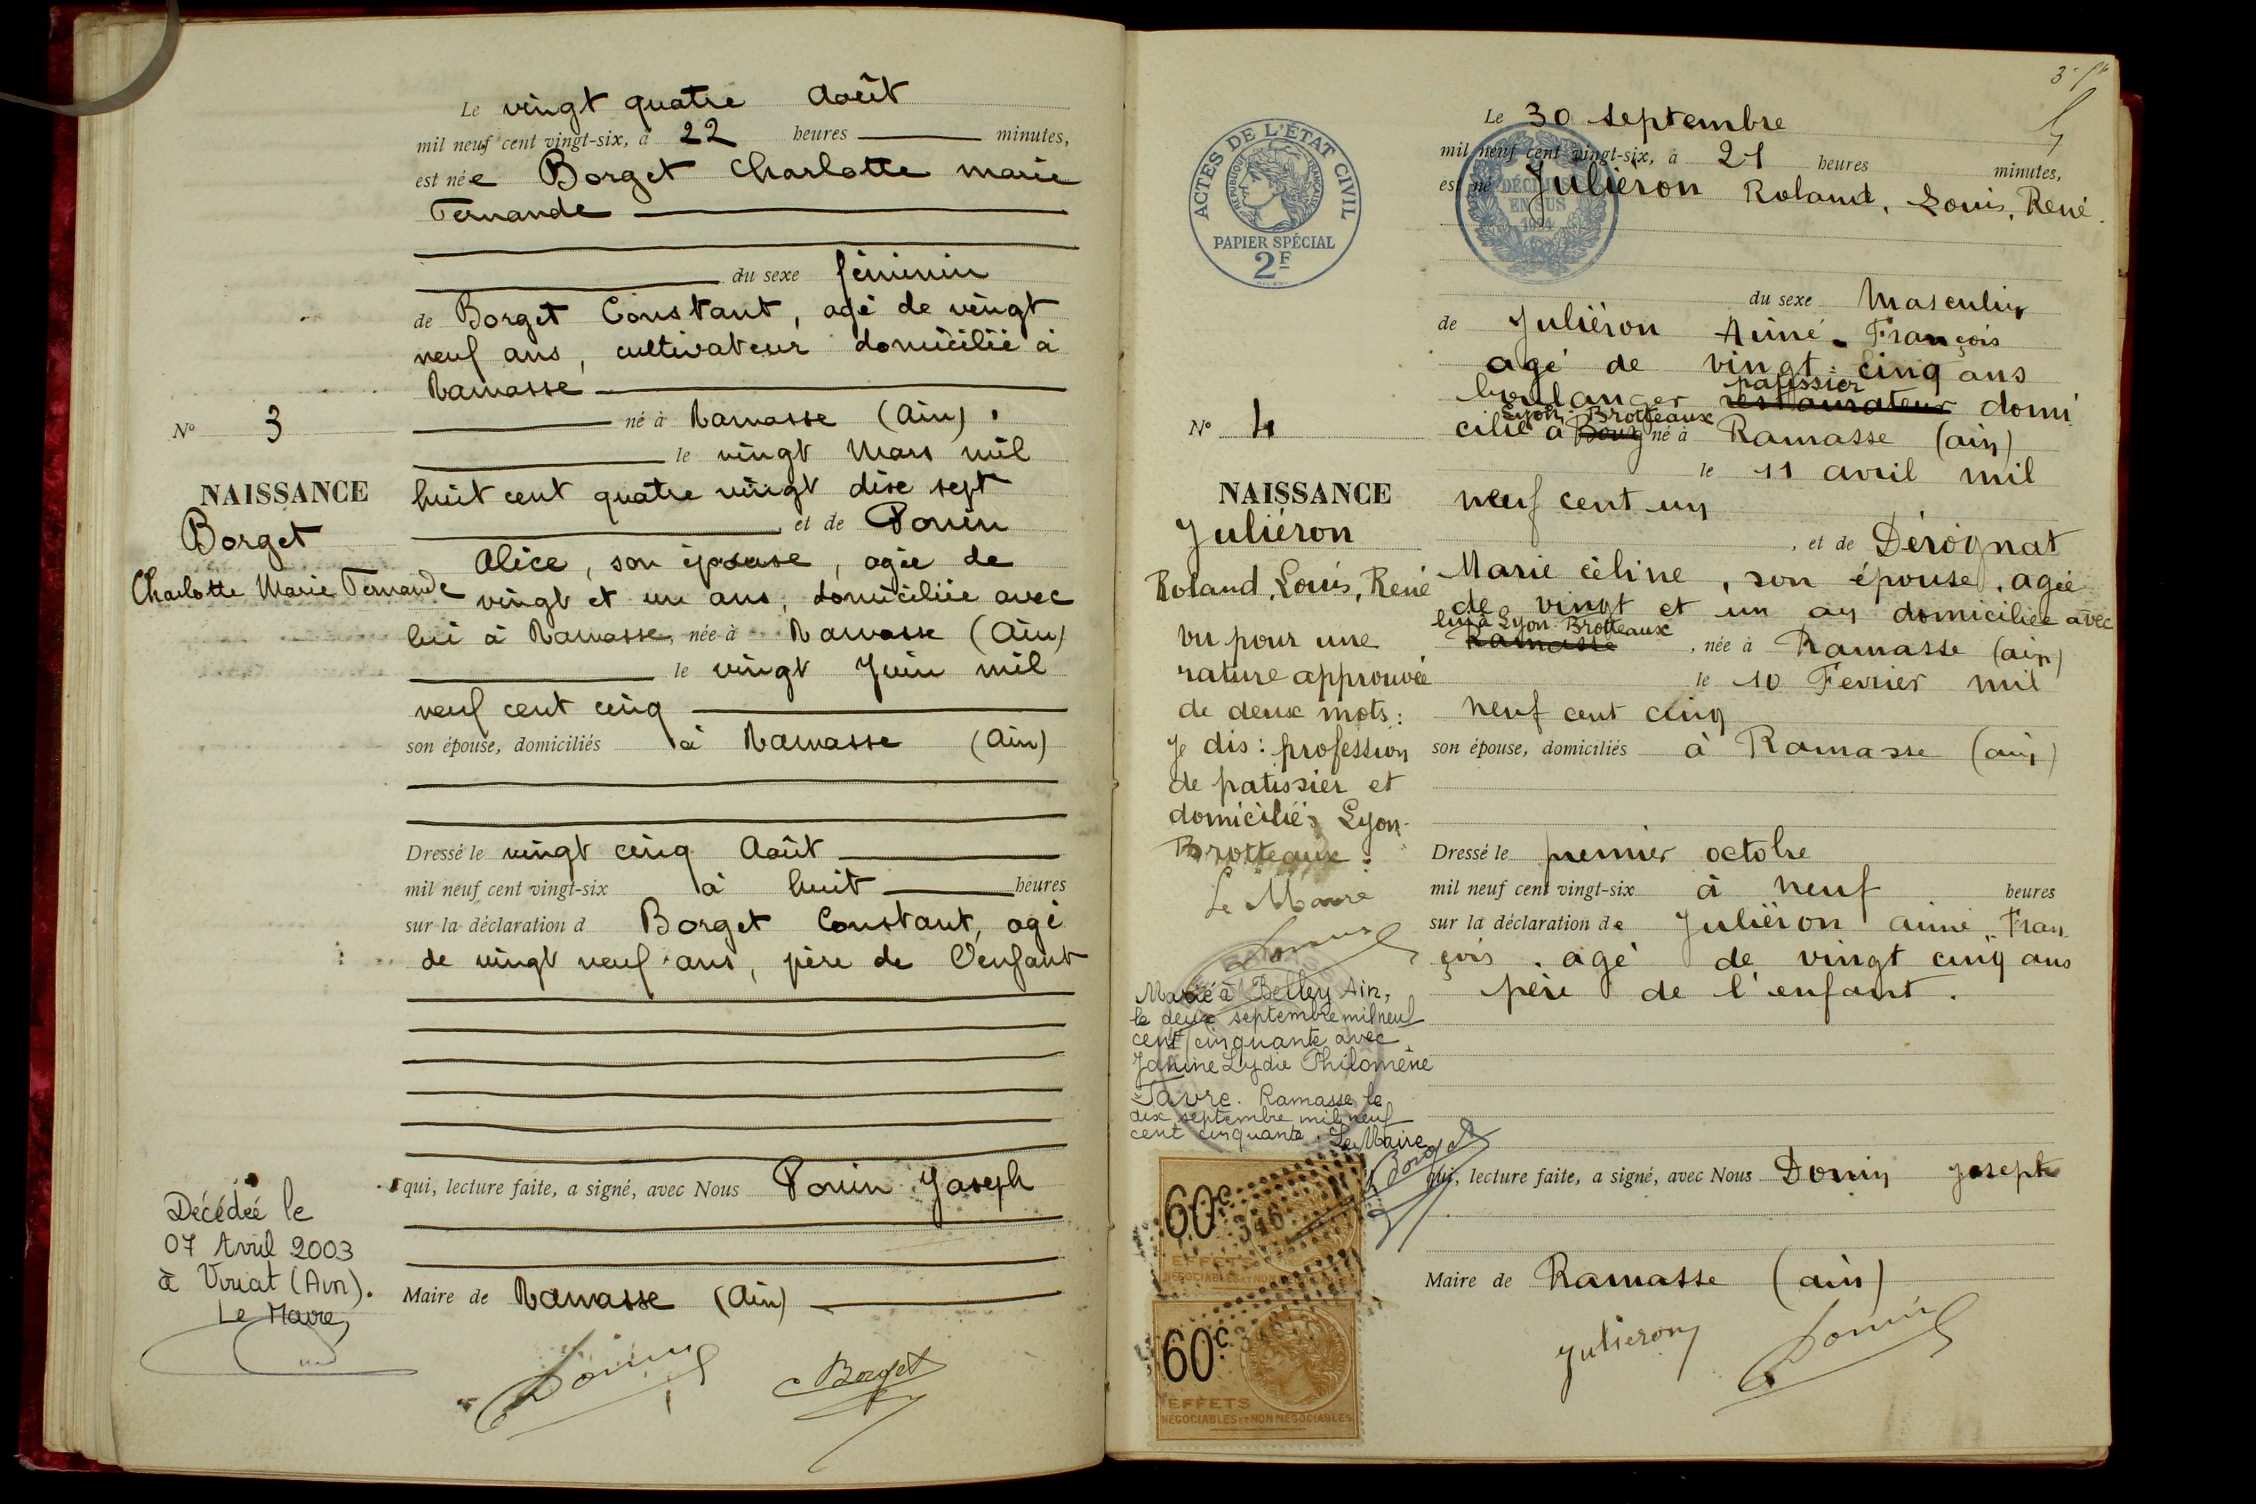 Le vingt quatre Août
mil neuf cent vingt-six, à 22 heures minutes,
est née Borget Charlotte marie
Fernande
du sexe féminin
de Borget Constant, agé de vingt
neuf ans, cultivateur domicilié à
Ramasse
né à Ramasse (Ain),
le vingt Mars mil
huit cent quatre vingt dixe sept
et de Ponin
Alice, son épouse, agée de
vingt et un ans, domiciliée avec
lui à Ramasse, née à Ramasse (Ain)
le vingt Juin mil
neuf cent cinq
son épouse, domiciliés à Ramasse (Ain)
Dressé le vingt cinq Août
mil neuf cent vingt-six à huit heures
sur la déclaration d Borget Constant, agé
de vingt neuf ans, père de l'enfant
qui, lecture faite, a signé, avec Nous Ponin Joseph
Maire de Ramasse (Ain)
Borget
No 3
NAISSANCE
Borget
Charlotte Marie Fernande
Décédée le
07 Avril 2003
à Viriat (Ain).
Le Maire,
3
ACTES DE L'ÉTAT CIVIL
RÉPUBLIQUE FRANÇAISE
PAPIER SPÉCIAL
2F
DÉCIMES
EN SUS
Le 30 septembre
mil neuf cent vingt-six, à 21 heures minutes,
est né Juliéron Roland, Louis, René.
du sexe Masculin
de Juliéron Aimé François
agé de vingt cinq ans
patissier
boulanger restaurateur domi
Lyon Brotteaux
cilié à Bourg né à Ramasse (ain)
le 11 avril mil
neuf cent un
, et de Dérognat
Marie céline, son épouse, agée
de vingt et un an domiciliée avec
lui à Lyon Brotteaux
Ramasse , née à Ramasse (ain)
le 10 Février mil
neuf cent cinq
son épouse, domiciliés à Ramasse (ain)
Dressé le premier octobre
mil neuf cent vingt-six à neuf heures
sur la déclaration de Juliéron aimé Fran
çois, agé de vingt cinq ans
père de l'enfant.
qui, lecture faite, a signé, avec Nous Donin joseph
Maire de Ramasse (ain)
Julieron
Donin
No 4
NAISSANCE
Juliéron
Roland, Louis, René
vu pour une
rature approuvée
de deux mots:
je dis: profession
de patissier et
domicilié: Lyon
Brotteaux.
Le Maire
Marié à Belley Ain,
le deux septembre mil neuf
cent cinquante avec
Janine Lydie Philomène
Favre. Ramasse le
dix septembre mil neuf
cent cinquante. Le Maire
Borget
60c
EFFETS
NÉGOCIABLES ET NON NÉGOCIABLES
60c
EFFETS
NÉGOCIABLES ET NON NÉGOCIABLES